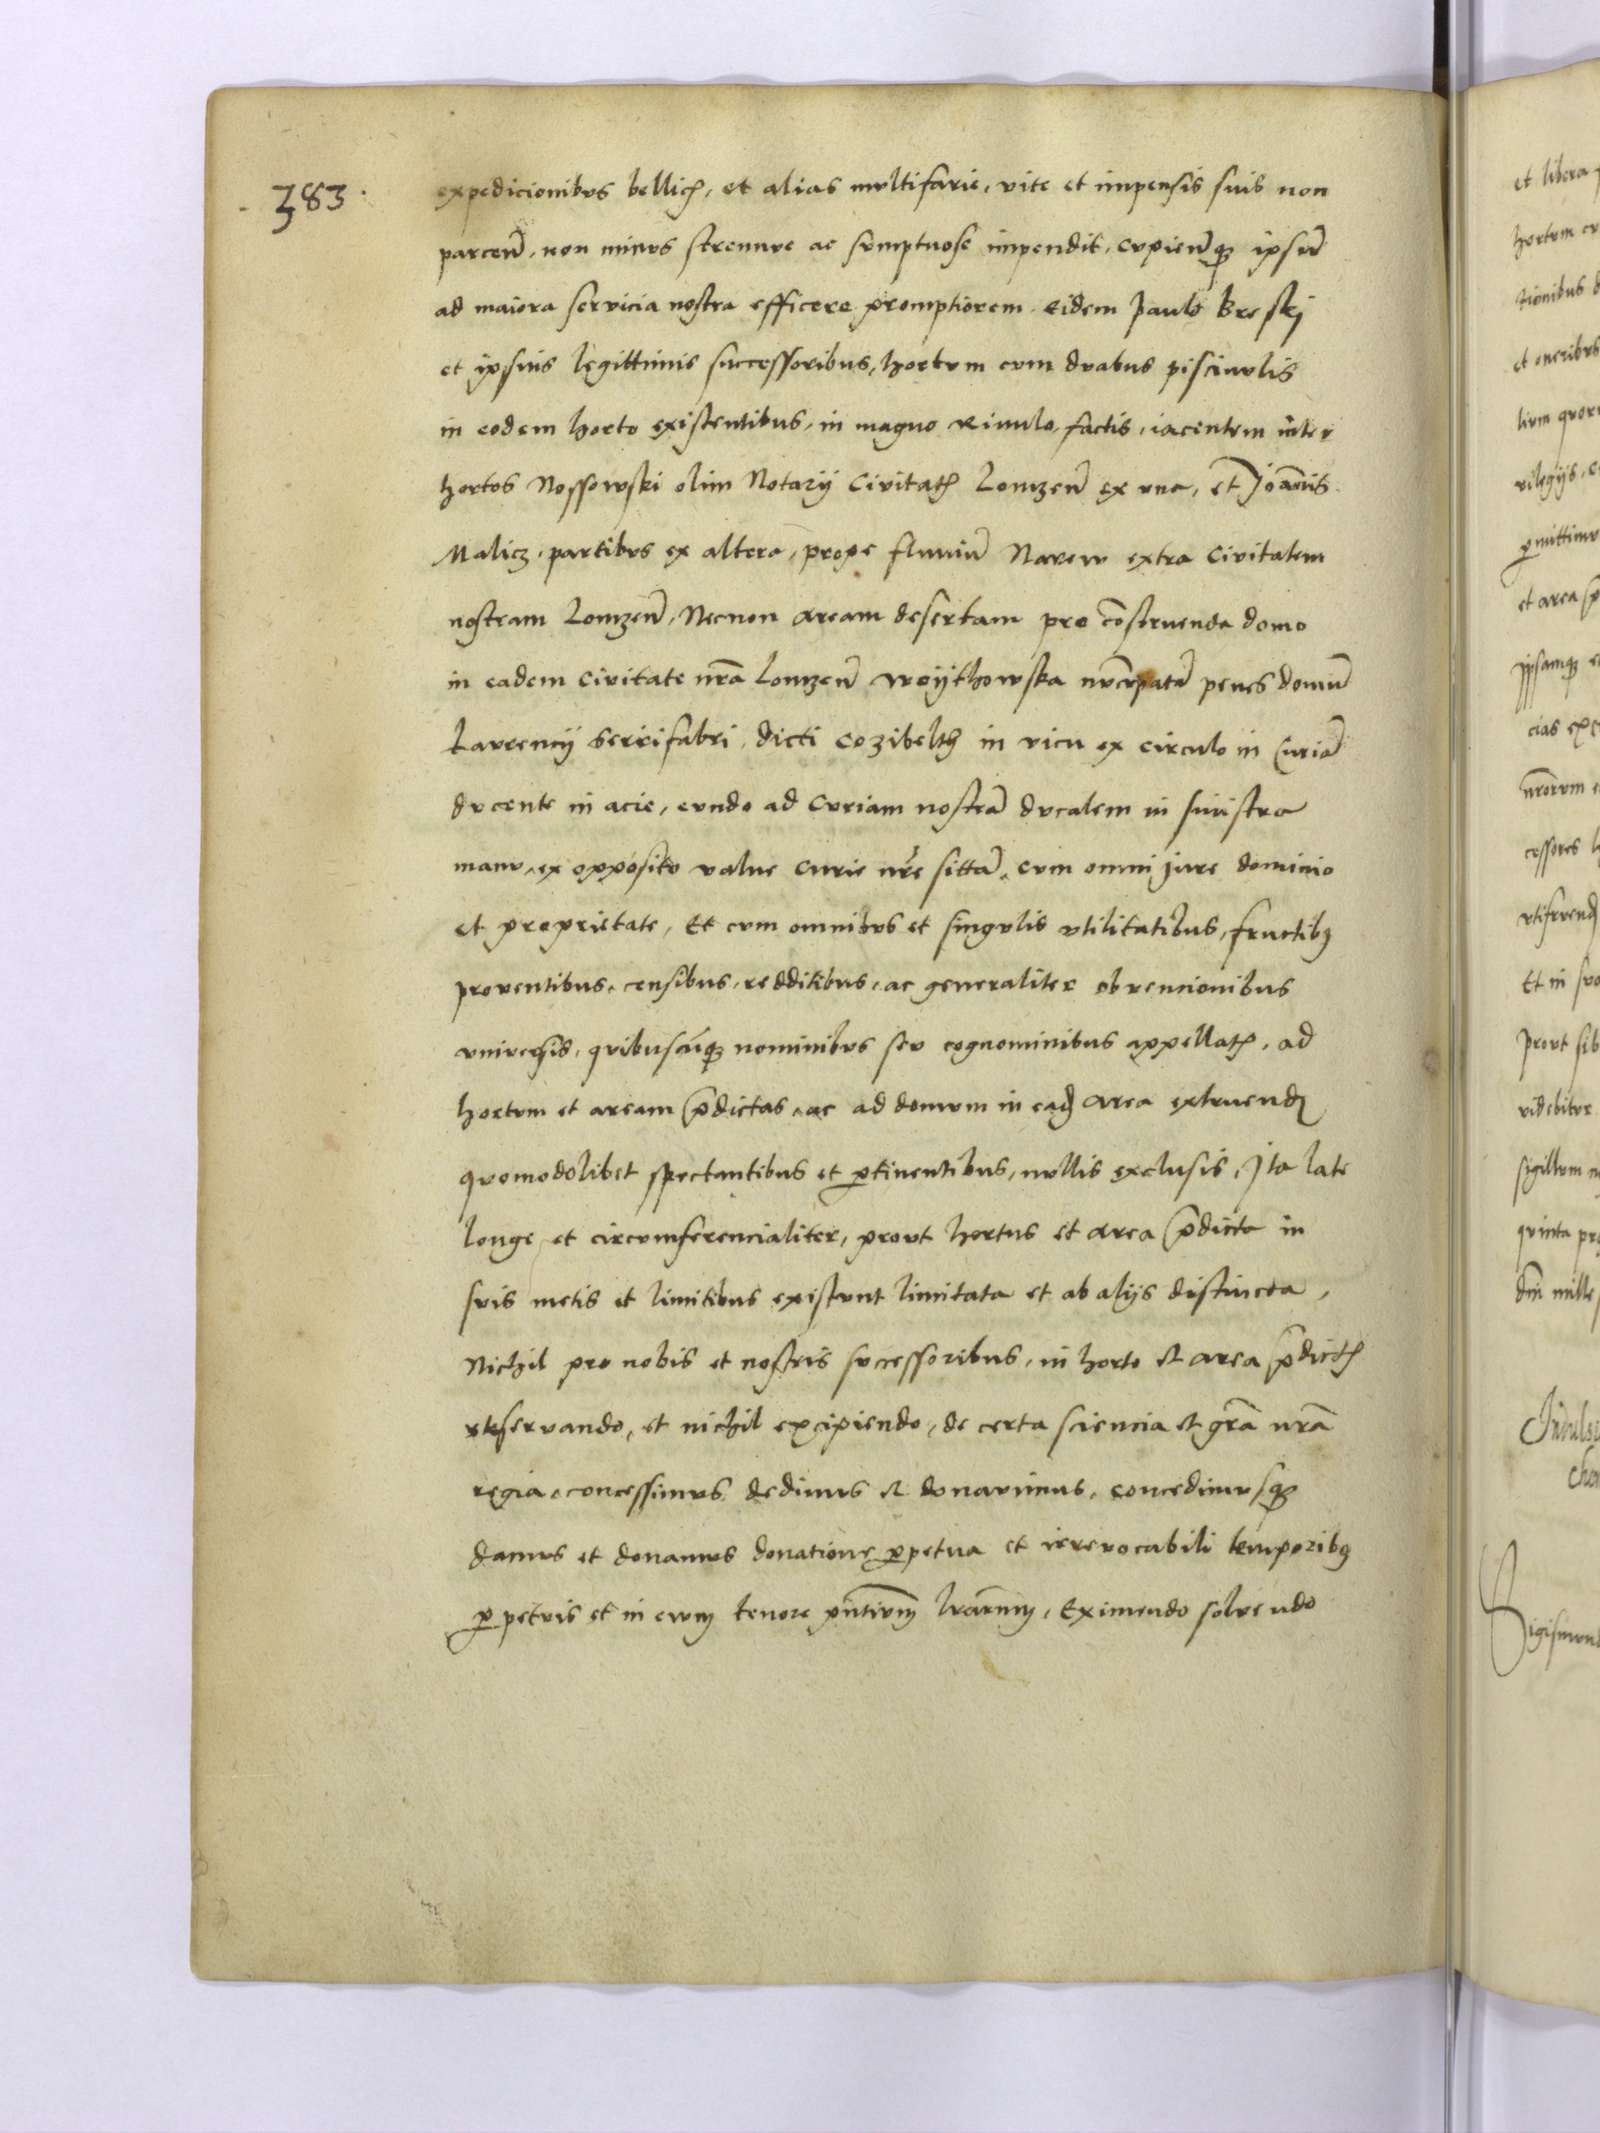 383
expedicionibus bellicꝭ, et alias multifarie, vite et impensis suis non
parcen̄, non minus strenue ac sumptuose impendit, cupien̄qꝫ ipsum̄
ad maiora servicia nostra efficere promptiorem eidem Paulo Kreski
et ipsius legittimis successoribus, hortum cum duabus piscinulis
in eodem horto existentibus, in magno Rivulo factis, iacentem inter
hortos Nossowski olim Notarij Civitatꝭ Lomzen̄ ex una, et Joānis
Malicz, partibus ex altera, prope fluviū Narew extra Civitatem
nostram Lomzen̄, Necnon aream desertam pro cōstruenda domo
in eadem Civitate nr̄a Lomzen̄ Woijthowska nūcupatā penes domū
Laurencij Serrifabri, dicti Cozibelth in vicu ex circulo in Curiā
ducente in acie, eundo ad Curiam nostrā ducalem in sinistra
manu, ex opposito valve curie nr̄e sittā, cum omni jure dominio
et proprietate, Et cum omnibus et singulis utilitatibus, fructibꝫ
proventibus, censibus, redditibus, ac generaliter obvencionibus
universis, quibuscūqꝫ nominibus seu cognominibus appellatꝭ, ad
hortum et aream p̄dictas, ac ad domum in eadꝭ area extruendꝭ
quomodolibet spectantibus et ꝑtinentibus, nullis exclusis, Ita late
longe et circumferencialiter, prout hortus et area p̄dicta in
suis metis et limitibus existunt limitata et ab alijs distincta,
Nichil pro nobis et nostris successoribus, in horto et area p̄dictꝭ
reservando, et nichil excipiendo, de certa sciencia et gr̄a nr̄a
regia, concessimus dedimus et donavimus, concedimusqꝫ
damus et donamus donatione ꝑpetua et irrevocabili temporibꝫ
ꝑpetuis et in evum tenore pn̄tium lr̄arum, Eximendo solvendo
et libera
hortum
et oneribus
ꝑmittimus
et area p̄
cias
nr̄orum
cessores
Et in
prout sib
videbitur
sigillum
quinta
dn̄i mille
Sigismun